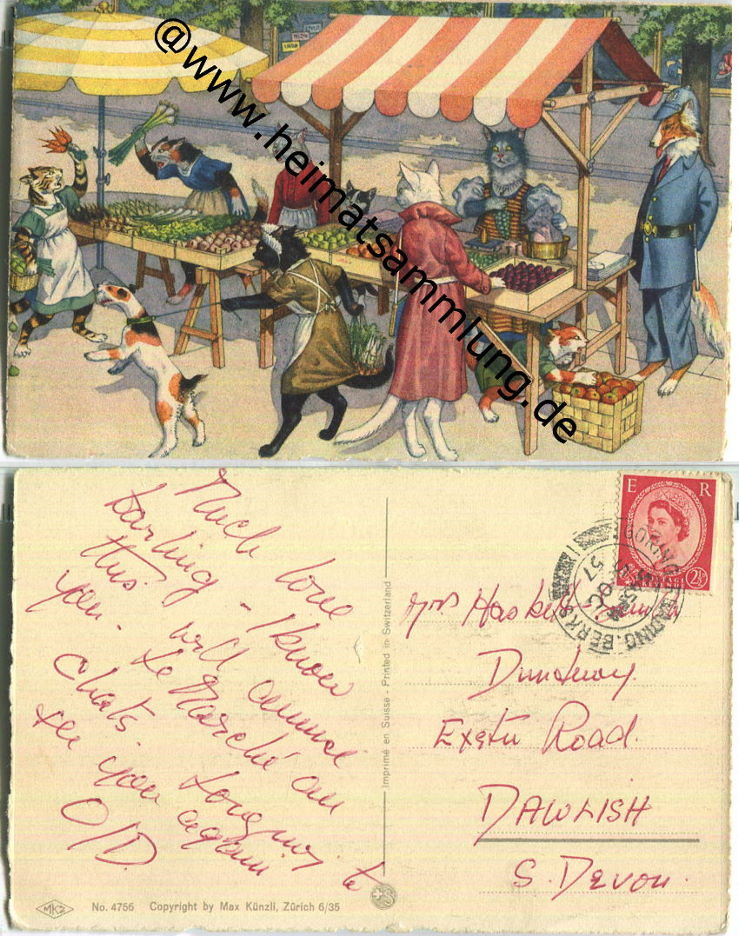 @www.heimatsammlung.de
Much love
Darling - I know
this will amuse
you. Le Marché au
Chats. Longing to
see you again
O/D.
Imprimé en Suisse - Printed in Switzerland
E R
2½
57
READING. BERKS
Mrs
Exeter Road.
DAWLISH
S. DEVON.
MKZ
No. 4756 Copyright by Max Künzli, Zürich 6/35